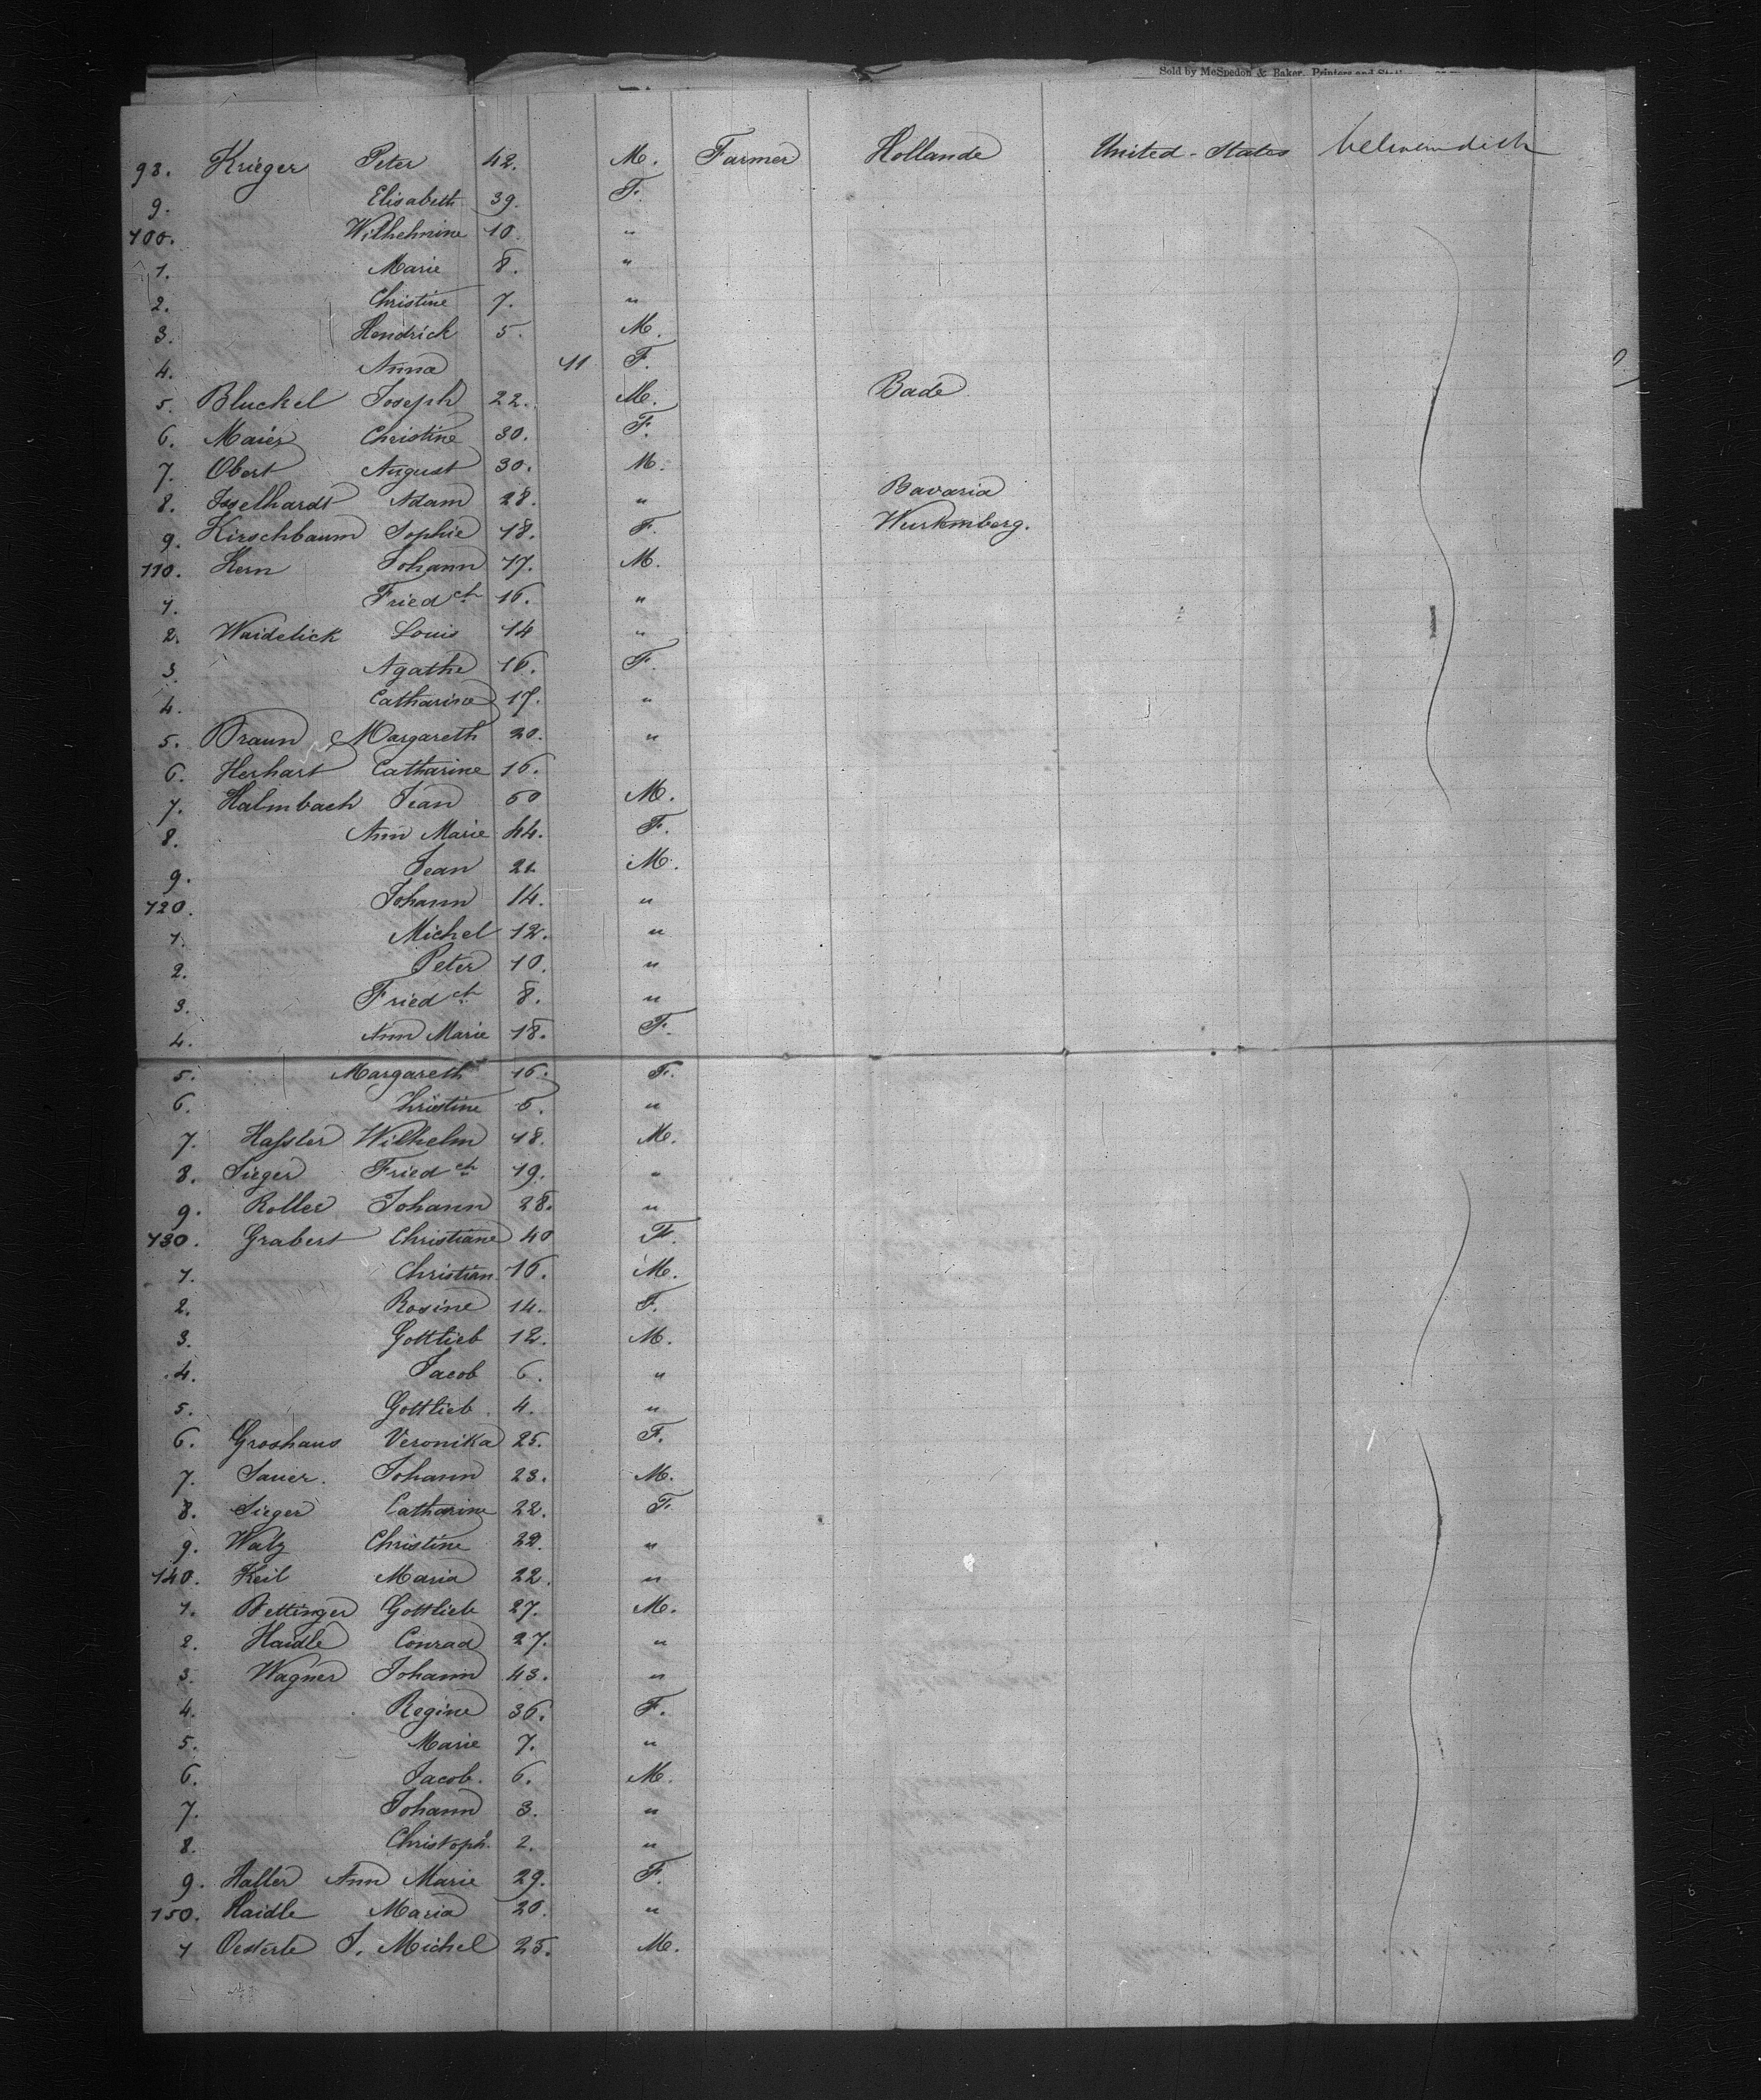 Sold by McSpedon & Baker, Printers and
98. Krieger Peter 42. M. Farmer Hollande United-States
9. Elisabeth 39. F.
100. Wilhelmine 10. "
1. Marie 8. "
2. Christine 7. "
3. Hendrick 5. M.
4. Anna 11 F.
5. Bluckel Joseph 22. M. Bade
6. Maier Christine 30. F.
7. Obert August 30. M.
8. Isselhardt Adam 28. " Bavaria
9. Kirschbaum Sophie 18. F. Wurtemberg.
110. Kern Johann 17. M.
1. Fried ch 16. "
2. Waidelick Louis 14 "
3. Agathe 16. F.
4. Catharine 17. "
5. Braun Margareth 20. "
6. Herhart Catharine 16.
7. Halmbach Jean 50 M.
8. Ann Marie 44. F.
9. Jean 21. M.
120. Johann 14. "
1. Michel 12. "
2. Peter 10. "
3. Fried ch 8. "
4. Ann Marie 18. F.
5. Margareth 16. F.
6. Christine 5. "
7. Hassler Wilhelm 18. M.
8. Sieger Fried ch 19. "
9. Roller Johann 28. "
130. Grabert Christiane 40 F.
1. Christian 16. M.
2. Rosine 14. F.
3. Gottlieb 12. M.
4. Jacob 6. "
5. Gottlieb. 4. "
6. Groshans Veronika 25. F.
7. Sauer. Johann 23. M.
8. Sieger Catharine 22. F.
9. Walz Christine 22. "
140. Keil Maria 22. "
1. Bettinger Gottlieb 27. M.
2. Haidle Conrad 27. "
3. Wagner Johann 43. "
4. Regine 36. F.
5. Marie 7. "
6. Jacob. 6. M.
7. Johann 3. "
8. Christoph. 2. "
9. Haller Ann Marie 29. F.
150. Haidle Maria 20. "
1 Oesterle J. Michel 25. M.